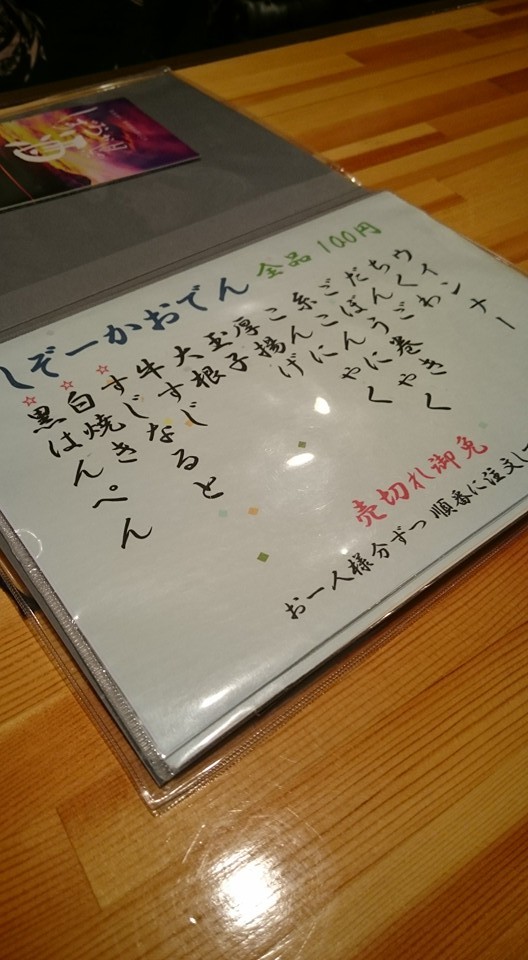 しぞーかおでん 全品100円
☆黒はんぺん
☆白焼き
☆すじなると
牛すじ
大根
玉子
厚揚げ
こんにゃく
糸こんにゃく
ごぼう巻き
だんご
ちくわ
ウィンナー
売切れ御免
お一人様分ずつ順番に注文し